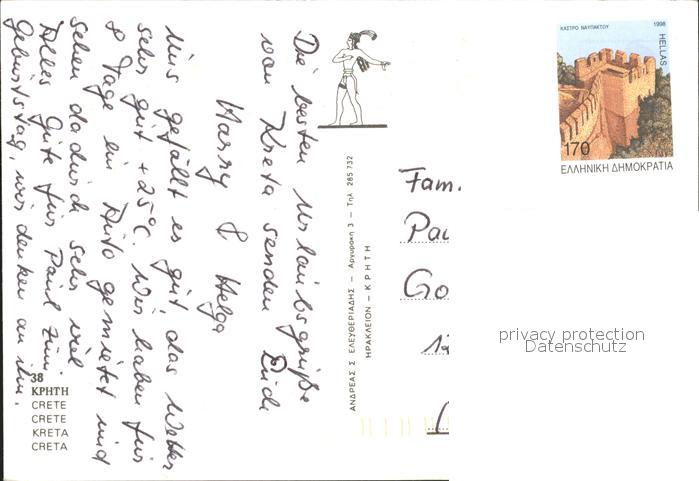 Die besten Urlaubsgrüße
von Kreta senden Euch
Harry & Helga
Uns gefällt es gut das Wetter
sehr gut + 25°C. Wir haben für
8 Tage ein Auto gemietet und
sehen dadurch sehr viel
Alles Gute für Paul zum
Geburtstag, wir denken an ihn.
38
ΚΡΗΤΗ
CRETE
CRETE
KRETA
CRETA
ΑΝΔΡΕΑΣ Σ. ΕΛΕΥΘΕΡΙΑΔΗΣ — Αργυράκη 3 — Τηλ. 285 732
ΗΡΑΚΛΕΙΟΝ - ΚΡΗΤΗ
ΚΑΣΤΡΟ ΝΑΥΠΑΚΤΟΥ
1998
HELLAS
170
ΕΛΛΗΝΙΚΗ ΔΗΜΟΚΡΑΤΙΑ
Fam.
Pau
Go
privacy protection
Datenschutz